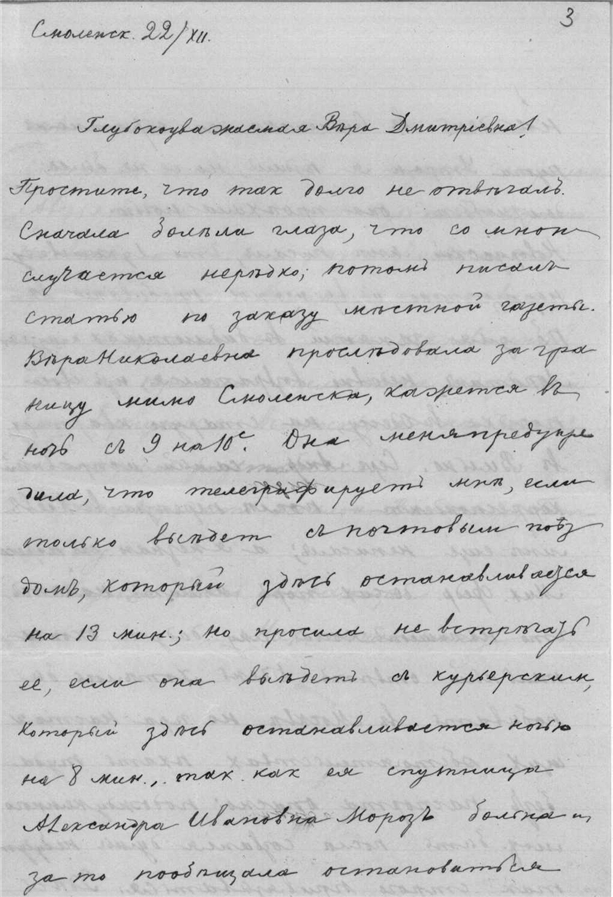 3
Смоленск. 22/XII.
Глубокоуважаемая Вѣра Дмитріевна!
Простите, что так долго не отвѣчалъ.
Сначала болѣли глаза, что со мною
случается нерѣдко; потомъ писалъ
статью по заказу мѣстной газеты.
Вѣра Николаевна прослѣдовала за гра
ницу мимо Смоленска, кажется въ
ночь съ 9 на 10е. Она меня предупре
дила, что телеграфируетъ мнѣ, если
только выѣдет съ почтовым поѣз
домъ, который здѣсь останавливается
на 13 мин.; но просила не встрѣчать
ее, если она выѣдетъ съ курьерским,
который здѣсь останавливается ночью
на 8 мин., так как ея спутница
Александра Ивановна Морозъ больна и
за то пообѣщала остановиться